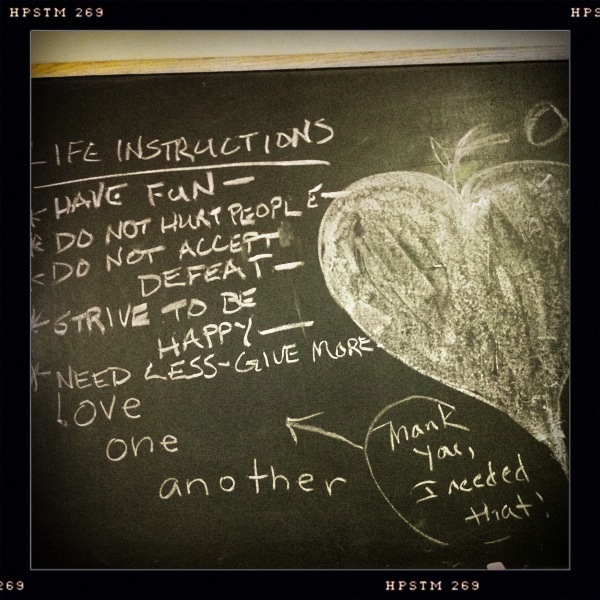 HPSTM 269
HPS
LIFE INSTRUCTIONS
* HAVE FUN —
* DO NOT HURT PEOPLE —
* DO NOT ACCEPT
DEFEAT —
* STRIVE TO BE
HAPPY —
* NEED LESS - GIVE MORE.
Love
one
another
Thank
you,
I needed
that!
269
HPSTM 269